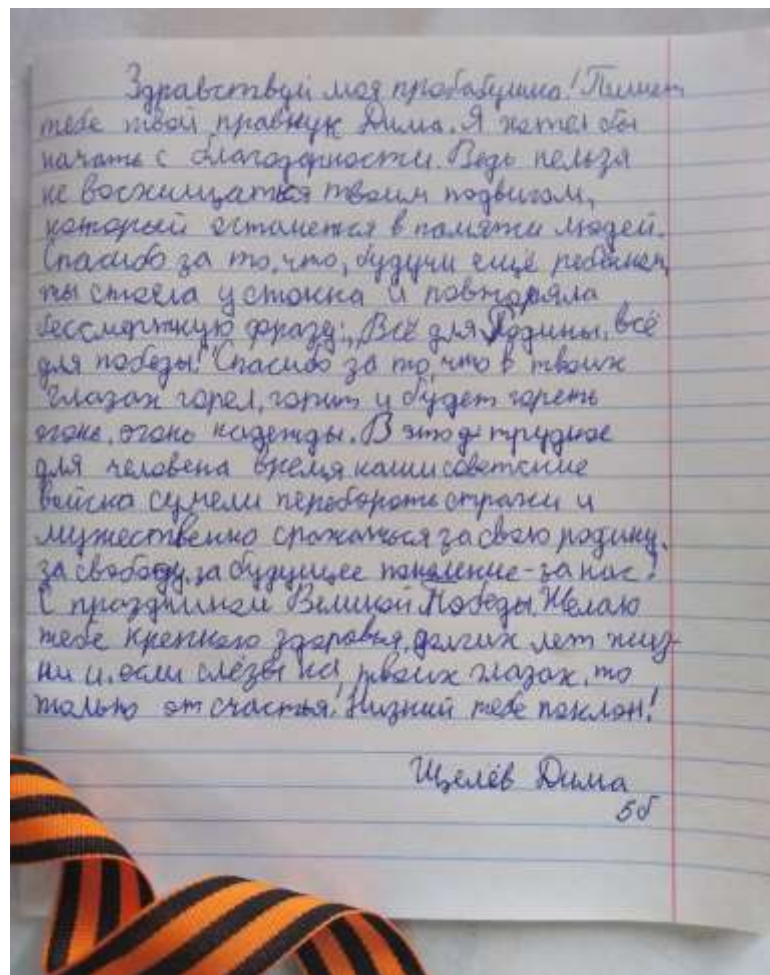 Здравствуй моя пробабушка! Пишет
тебе твой правнук Дима. Я хотел бы
начать с благодарности. Ведь нельзя
не восхищаться твоим подвигом,
который останется в памяти людей.
Спасибо за то, что, будучи ещё ребёнком,
ты стояла у станка и повторяла
бессмертную фразу: „Всё для Родины, всё
для победы!" Спасибо за то, что в твоих
глазах горел, горит и будет гореть
огонь, огонь надежды. В это трудное
для человека время наши советские
войска сумели перебороть страхи и
мужественно сражаться за свою родину,
за свободу, за будущее поколение - за нас!
С праздником Великой Победы. Желаю
тебе крепкого здоровья, долгих лет жиз-
ни и, если слёзы на твоих глазах, то
только от счастья! Низкий тебе поклон!
Щелёв Дима
5б